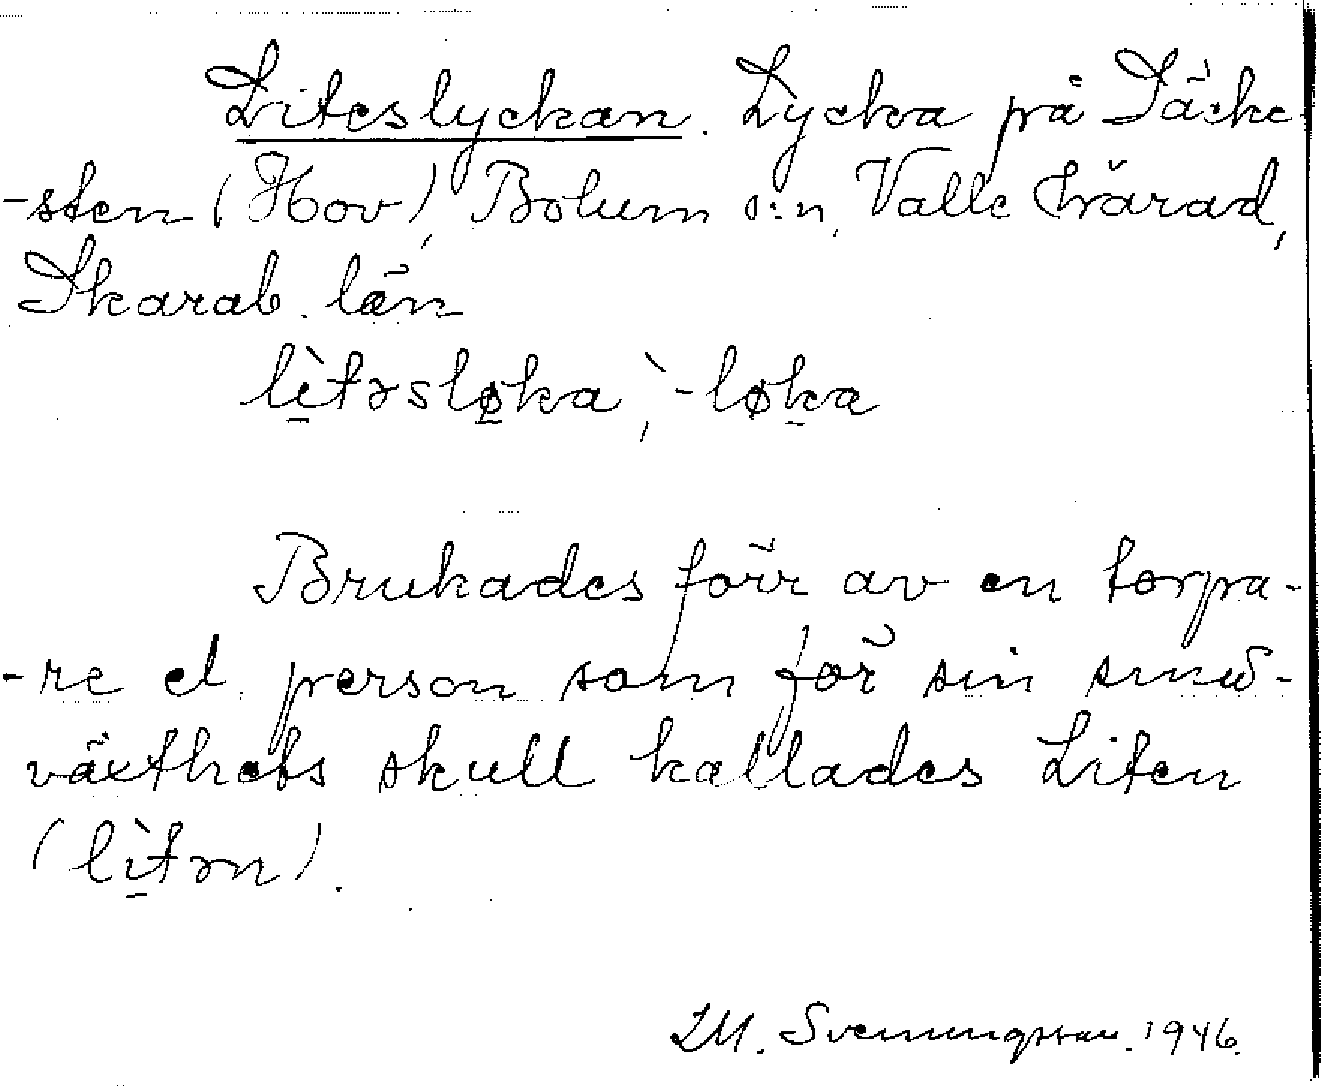 Liteslyckan. Lycka på Säcke-
-sten (Hov), Bolum s:n, Valle härad,
Skarab. län
lìtəsløka, ̀-løka
Brukades förr av en torpa-
-re el. person som för sin små-
växthets skull kallades Liten
(lìtən).
I.M. Svenungsson. 1946.